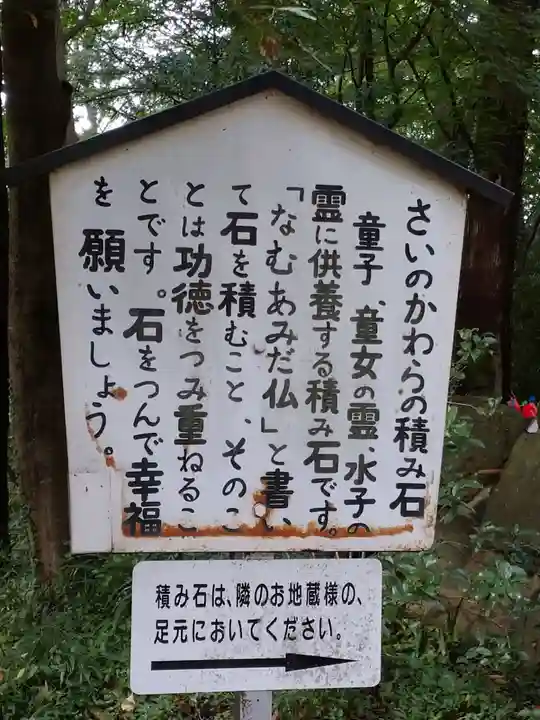 さいのかわらの積み石
童子、童女の霊、水子の
霊に供養する積み石です。
「なむあみだ仏」と書い
て石を積むこと、そのこ
とは功徳をつみ重ねるこ
とです。石をつんで幸福
を願いましょう。
積み石は、隣のお地蔵様の、
足元においてください。